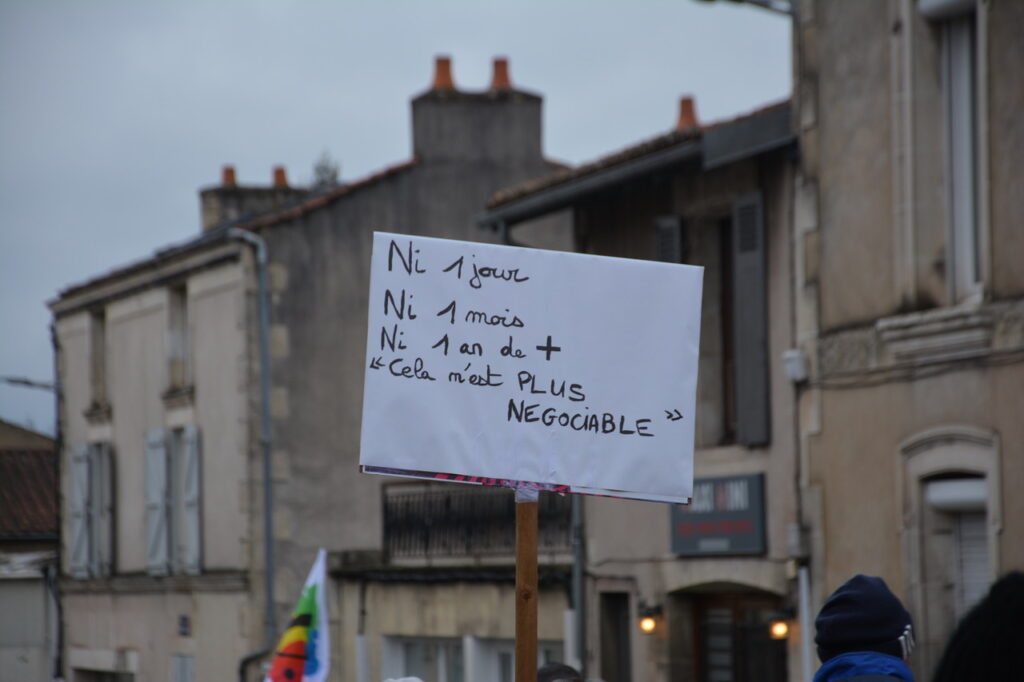 Ni 1 jour
Ni 1 mois
Ni 1 an de +
"Cela n'est PLUS
NEGOCIABLE"